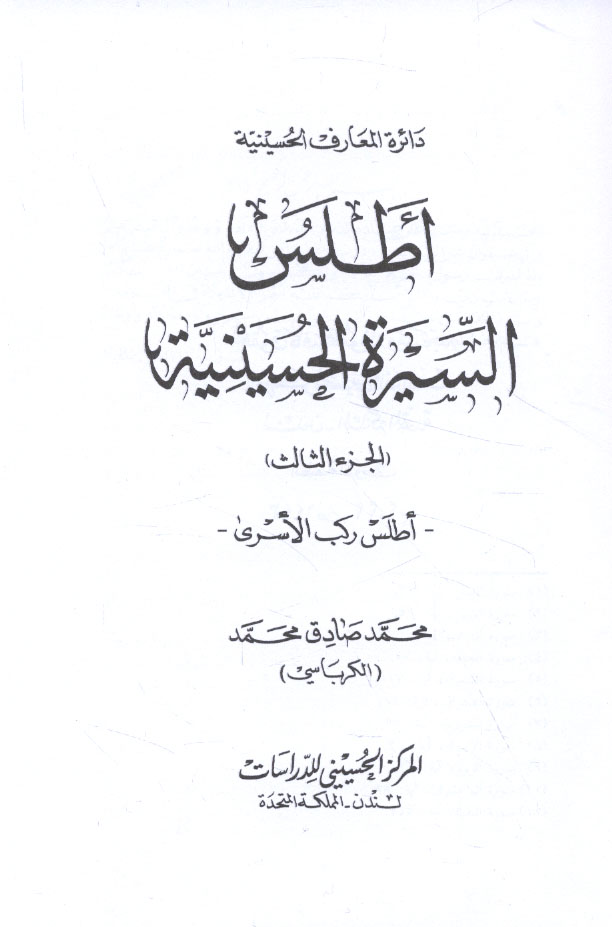 دائرة المعارف الحسينية
أَطلَسُ
السِّيرَة الحُسَينِيَّة
(الجزء الثالث)
- أطلَسْ ركب الأسرىٰ -
محمَّد صَادِق محمَّد
(الكرباسي)
المركز الحسيني للدراسات
لندن - المملكة المتحدة